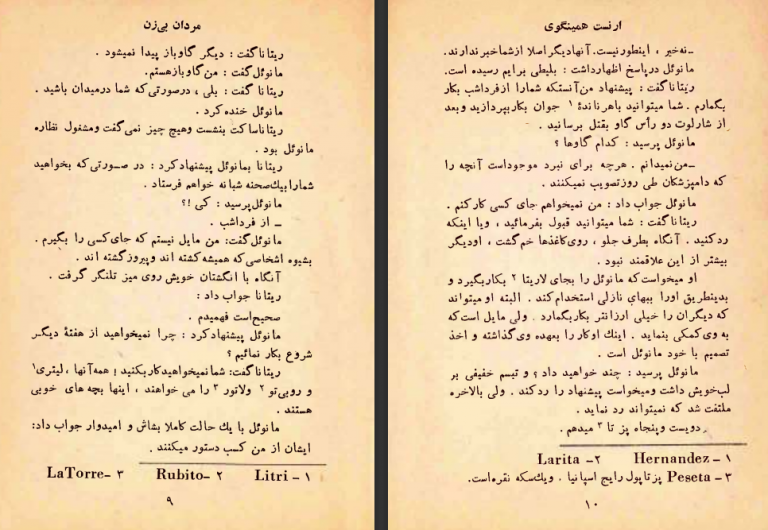 مردان بی‌زن
ریتاناگفت : دیگر گاوباز پیدا نمیشود .
مانوئل‌گفت : من‌گاوبازهستم.
ریتانا گفت : بلی ، درصورتی‌که شما درمیدان باشید .
مانوئل خنده‌کرد .
ریتاناساکت بنشست وهیچ چیز نمی‌گفت ومشغول نظاره
مانوئل بود .
ریتانا بمانوئل پیشنهادکرد : در صورتی‌که بخواهید
شمارابیك‌صحنه شبانه خواهم فرستاد .
مانوئل‌پرسید : کی !؟
ـ از فرداشب .
مانوئل‌گفت: من مایل نیستم که جای‌کسی را بگیرم .
بشیوه اشخاصی‌که همیشه‌کشته اند وپیروزگشته اند .
آنگاه با انگشتان خویش روی میز تلنگر گرفت .
ریتانا جواب داد :
صحیح‌است فهمیدم .
مانوئل پیشنهادکرد : چرا نمیخواهید از هفتهٔ دیگر
شروع بکار نمائیم ؟
ریتاناگفت: شمانمیخواهیدکاربکنید ! همه‌آنها ، لیتری۱
و روبی‌تو ۲ ولاتور ۳ را می خواهند ، اینها بچه‌های خوبی
هستند .
مانوئل با یك حالت کاملا بشاش و امیدوار جواب داد:
ایشان از من کسب دستور میکنند .
۱ – Litri ۲ –Rubito ۳ –LaTorre
۹
ارنست همینگوی
ـ نه‌خیر ، اینطورنیست. آنهادیگراصلا ازشماخبرندارند.
مانوئل درپاسخ اظهارداشت : بلیطی برایم رسیده است.
ریتاناگفت : پیشنهاد من‌آنستکه شمارا ازفرداشب بکار
بگمارم . شما میتوانید باهرناندهٔ ۱ جوان بکاربپردازید وبعد
از شارلوت دو رأس گاو بقتل برسانید .
مانوئل پرسید : کدام گاوها ؟
ـ من‌نمیدانم . هرچه برای نبرد موجوداست آنچه را
که دامپزشکان طی روزتصویب نمیکنند .
مانوئل جواب داد : من نمیخواهم جای کسی کارکنم .
ریتاناگفت : شما میتوانید قبول بفرمائید ، ویا اینکه
ردکنید . آنگاه بطرف جلو ، روی‌کاغذها خم‌گشت ، اودیگر
بیشتر از این علاقمند نبود .
او میخواست‌که مانوئل را بجای لاریتا ۲ بکاربگیرد و
بدینطریق اورا ببهای نازلی استخدام‌کند . البته او میتواند
که دیگران را خیلی ارزانتر بکاربگمارد . ولی مایل است‌که
به وی‌کمکی بنماید . اینك اوکار را بعهده وی‌گذاشته و اخذ
تصمیم با خود مانوئل است .
مانوئل پرسید : چند خواهید داد ؟ و تبسم خفیفی بر
لب‌خویش داشت ومیخواست پیشنهاد را ردکند . ولی بالاخره
ملتفت شد که نمیتواند رد نماید .
دویست وپنجاه پز تا ۳ میدهم .
۱ – Hernandez ۲ – Larita
۳ – Peseta پزتاپول رایج اسپانیا ، ویك‌سکه نقره‌است.
۱۰